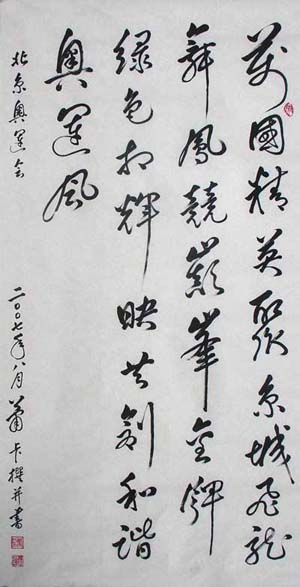 萬國精英聚京城飛龍
舞鳳競巔峯金牌
綠色相輝映共創和諧
奧運風
北京奧運會 二〇〇七年八月蕭卡撰并書